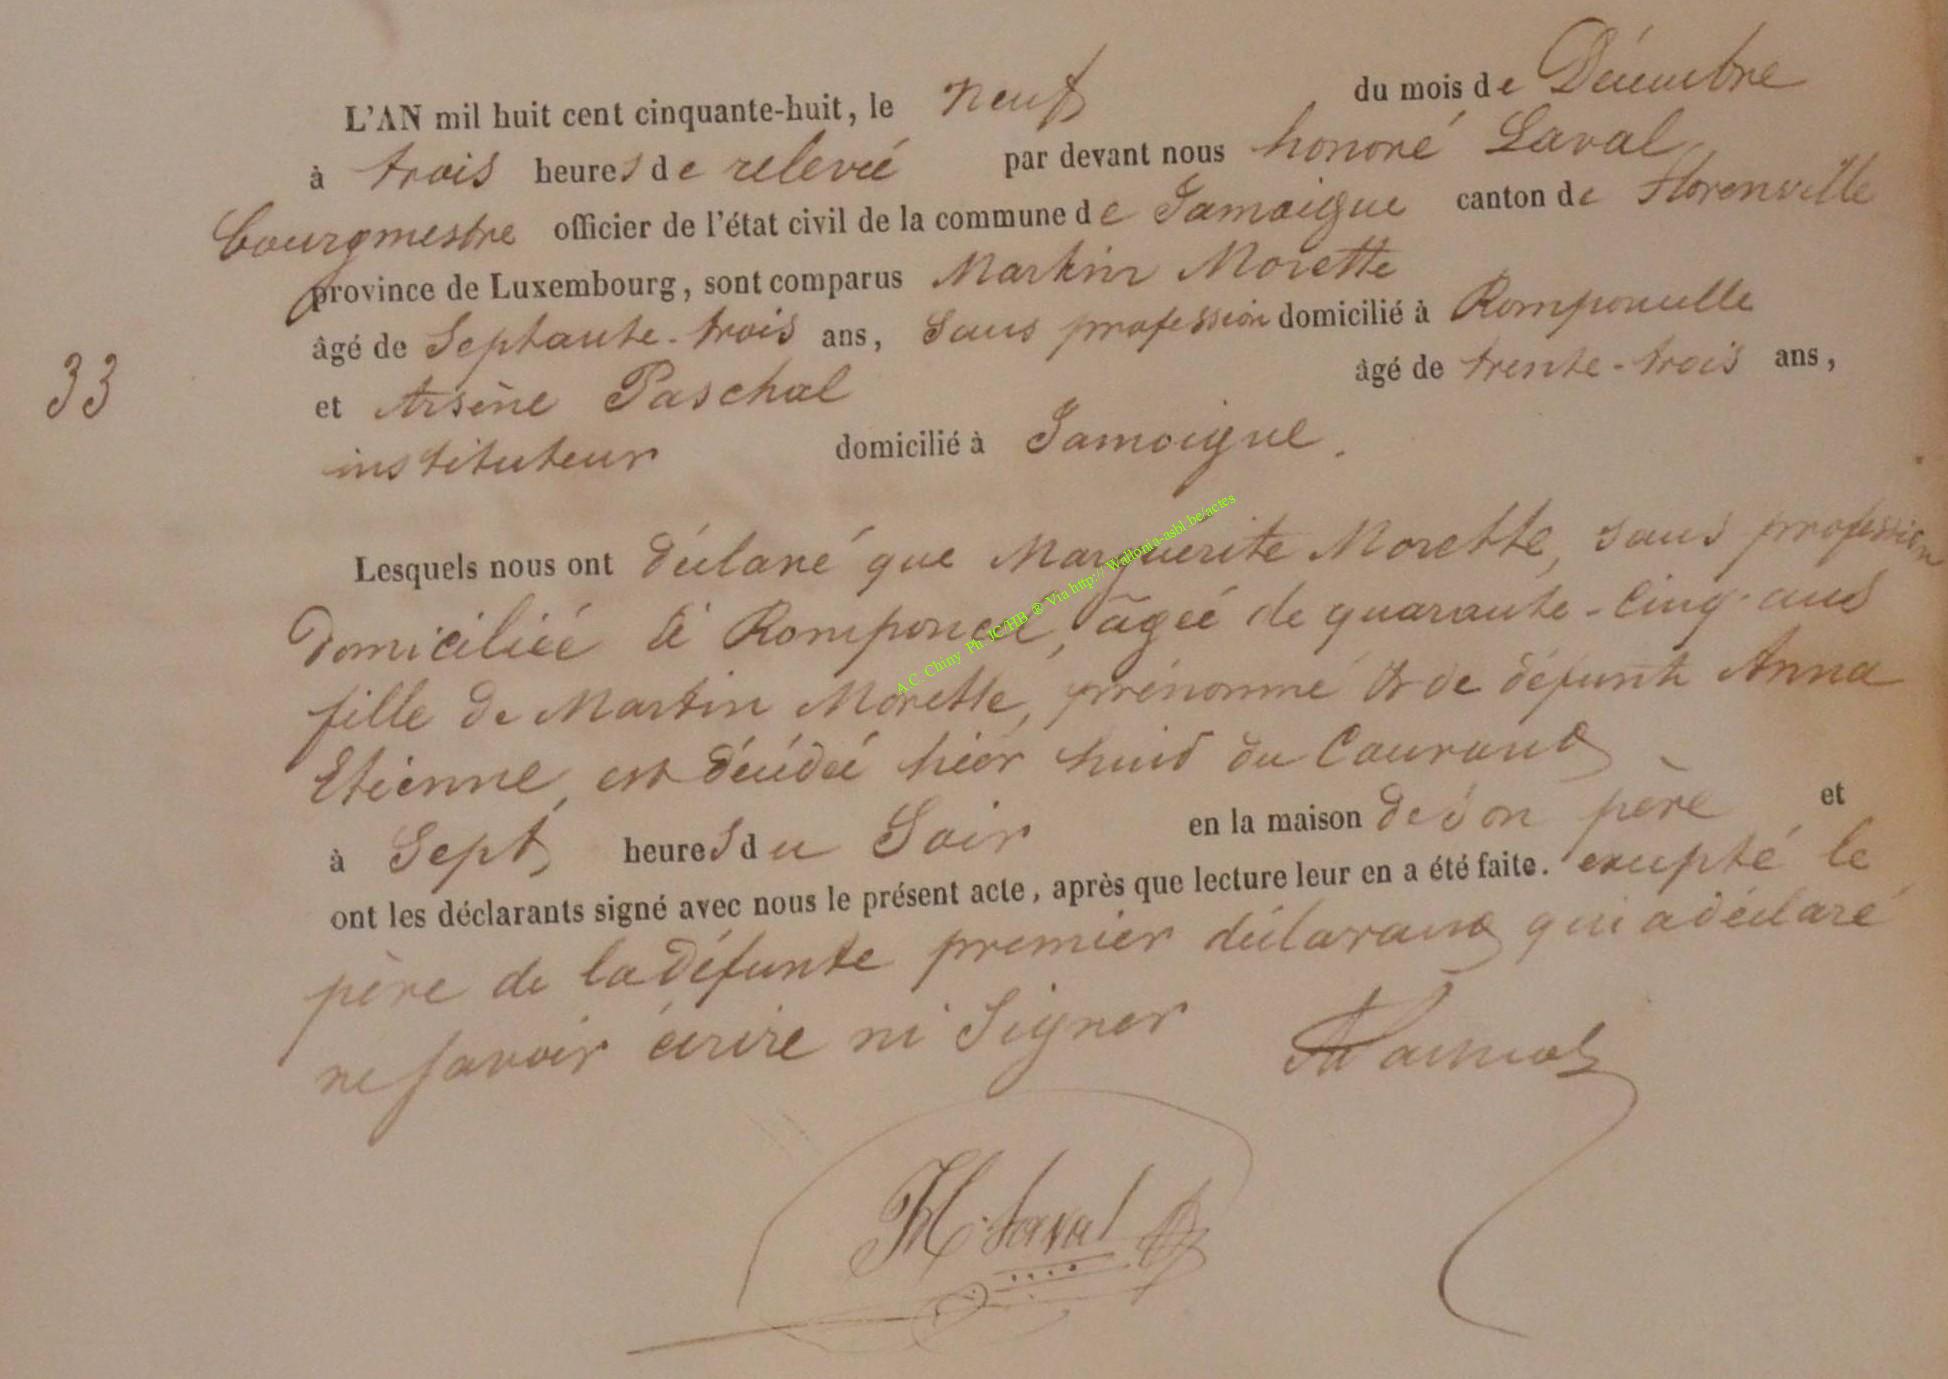 L'AN mil huit cent cinquante-huit, le neuf du mois de Décembre
à trois heures de relevée par devant nous honoré Laval
bourgmestre officier de l'état civil de la commune de Jamoigne canton de Florenville
province de Luxembourg, sont comparus Martin Morette
âgé de Septante-trois ans, Sans profession domicilié à Romponcelle
33 et Arsène Paschal âgé de trente-trois ans,
instituteur domicilié à Jamoigne.
Lesquels nous ont déclaré que Marguerite Morette, sans profession
Domiciliée à âgée de quarante-cinq ans
fille de Martin Morette, prénommé & de défunte Anna
Etienne, est décédée hier huit du Courant
à Sept heures du Soir en la maison de son père et
ont les déclarants signé avec nous le présent acte, après que lecture leur en a été faite. excepté le
père de la défunte premier déclarant qui a déclaré
ne savoir écrire ni Signer
H. Laval
A.C. Chiny Ph. JC/HB ® Via http://Wallonia-asbl.be/actes